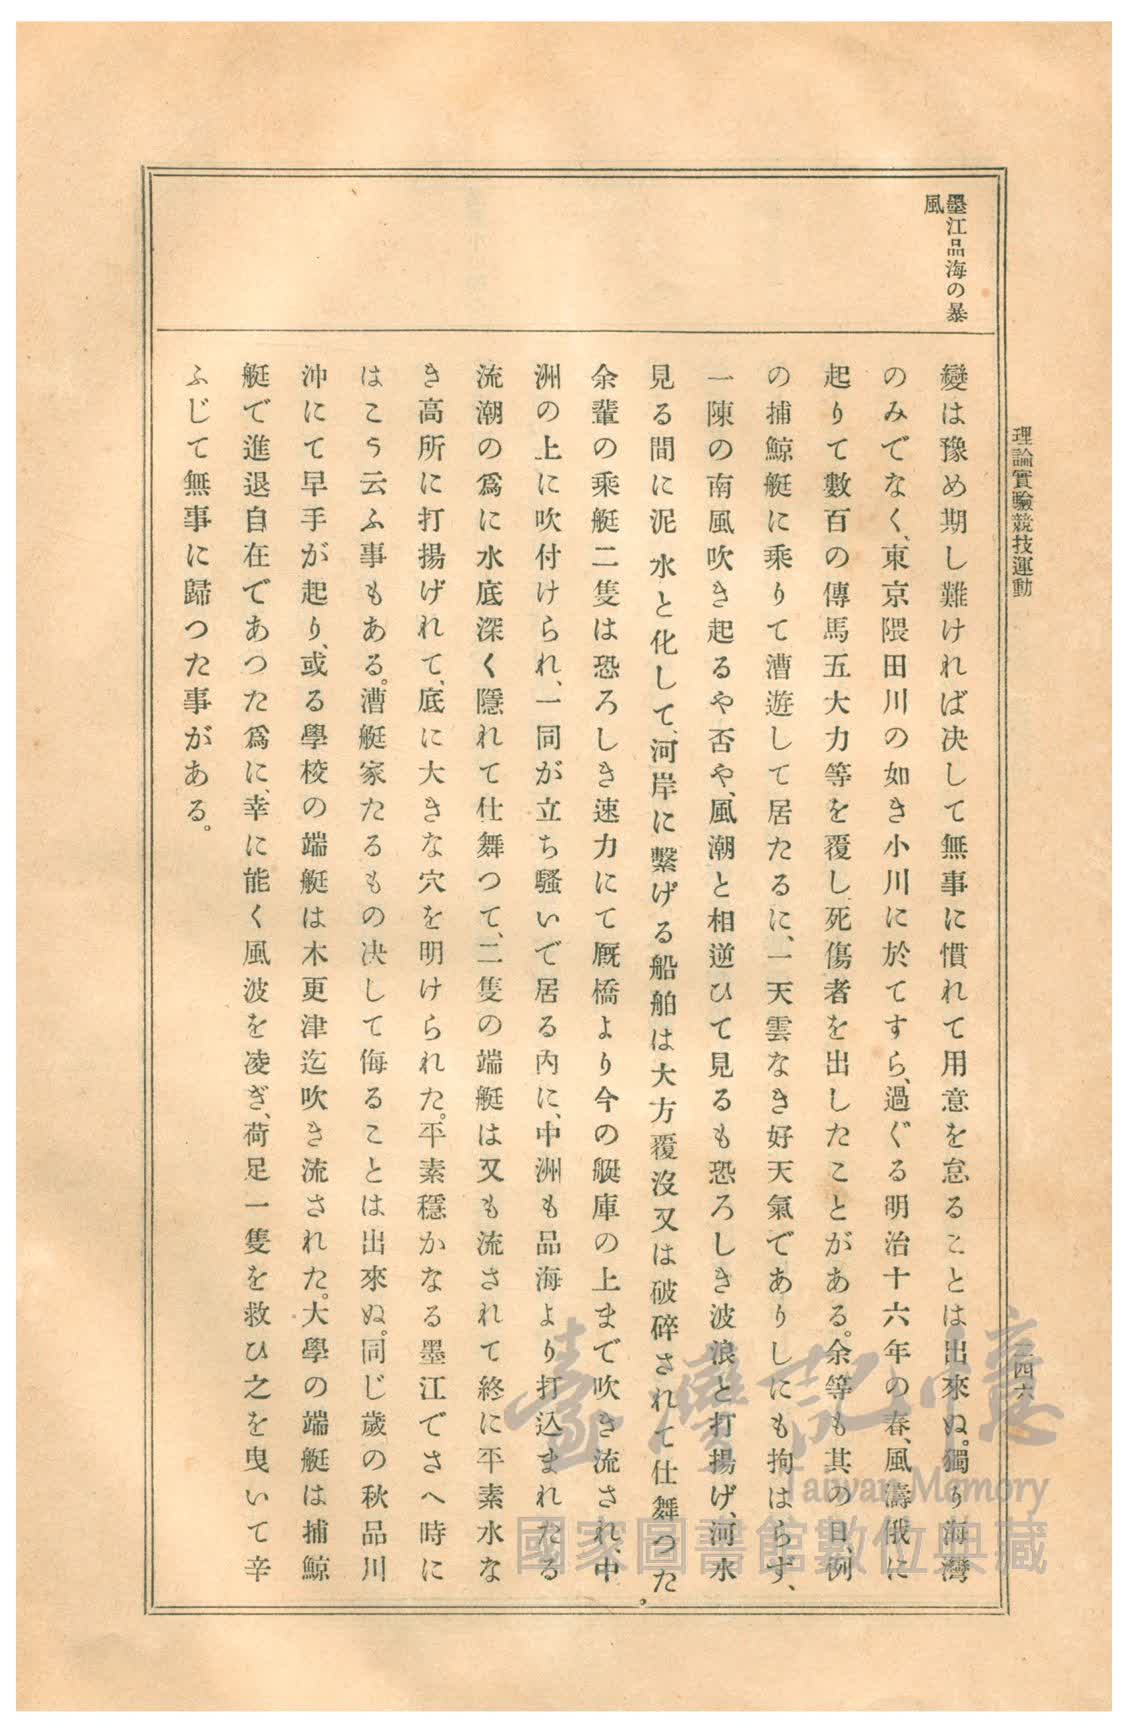 理論實驗競技運動
二四六
墨江品海の暴
風
變は豫め期し難ければ決して無事に慣れて用意を怠ることは出來ぬ。獨り海灣
のみでなく、東京隈田川の如き小川に於てすら、過ぐる明治十六年の春、風濤俄に
起りて數百の傳馬五大力等を覆し死傷者を出したことがある。余等も其の日、例
の捕鯨艇に乘りて漕遊して居たるに、一天雲なき好天氣でありしにも拘はらず、
一陳の南風吹き起るや否や、風潮と相逆ひて見るも恐ろしき波浪と打揚げ、河水
見る間に泥水と化して、河岸に繋げる船舶は大方覆沒又は破碎されて仕舞つた。
余輩の乘艇二隻は恐ろしき速力にて厩橋より今の艇庫の上まで吹き流され、中
洲の上に吹付けられ、一同が立ち騷いで居る內に、中洲も品海より打込まれたる
流潮の爲に水底深く隱れて仕舞つて、二隻の端艇は又も流されて終に平素水な
き高所に打揚げれて、底に大きな穴を明けられた。平素穩かなる墨江でさへ時に
はこう云ふ事もある。漕艇家たるもの決して侮ることは出來ぬ。同じ歲の秋品川
沖にて早手が起り、或る學校の端艇は木更津迄吹き流された。大學の端艇は捕鯨
艇で進退自在であつた爲に、幸に能く風波を凌ぎ、荷足一隻を救ひ之を曳いて辛
ふじて無事に歸つた事がある。
臺灣記憶
Taiwan Memory
國家圖書館數位典藏